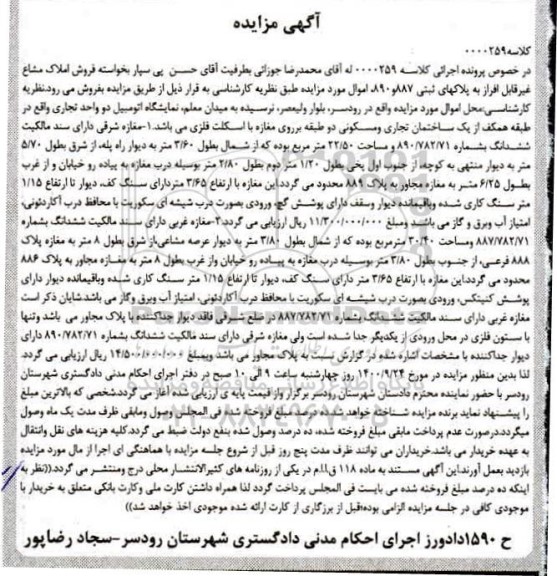 آگهی مزایده
کلاسه ۰۰۰۰۲۵۹
در خصوص پرونده اجرائی کلاسه ۰۰۰۰۲۵۹ له آقای محمدرضا جوزائی بطرفیت آقای حسن پی سپار بخواسته فروش املاک مشاع
غیرقابل افراز به پلاکهای ثبتی ۸۸۷و۸۹۰، اموال مورد مزایده طبق نظریه کارشناسی به قرار ذیل از طریق مزایده بفروش می رود.نظریه
کارشناسی:محل اموال مورد مزایده واقع در رودسر، بلوار ولیعصر، نرسیده به میدان معلم، نمایشگاه اتومبیل دو واحد تجاری واقع در
طبقه همکف از یک ساختمان تجاری ومسکونی دو طبقه برروی مغازه با اسکلت فلزی می باشد.۱-مغازه شرقی دارای سند مالکیت
ششدانگ بشماره ۸۹۰/۷۸۲/۷۱ و مساحت ۲۲/۵۰ متر مربع بوده که از شمال بطول ۳/۶۰ متر به دیوار راه پله، از شرق بطول ۵/۷۰
متر به دیوار منتهی به کوچه، از جنوب اول پخی بطول ۱/۲۰ متر دوم بطول ۲/۸۰ متر بوسیله درب مغازه به پیاده رو خیابان و از غرب
بطول ۶/۲۵ متر به مغازه مجاور به پلاک ۸۸۹ محدود می گردد.این مغازه با ارتفاع ۳/۶۵ متردارای سنگ کف، دیوار تا ارتفاع ۱/۱۵
متر سنگ کاری شده وباقیمانده دیوار وسقف دارای پوشش گچ، ورودی بصورت درب شیشه ای سکوریت با محافظ درب آکاردئونی،
امتیاز آب وبرق و گاز می باشند ومبلغ ۱۱/۳۰۰/۰۰۰/۰۰۰ ریال ارزیابی می گردد.۲-مغازه غربی دارای سند مالکیت ششدانگ بشماره
۸۸۷/۷۸۲/۷۱ ومساحت ۳۰/۴۰ مترمربع بوده که از شمال بطول ۳/۸۰ متر به دیوار عرصه مشاعی،از شرق بطول ۸ متر به مغازه پلاک
۸۸۸ فرعی، از جنوب بطول ۳/۸۰ متر بوسیله درب مغازه به پیاده رو خیابان واز غرب بطول ۸ متر به مغازه مجاور به پلاک ۸۸۶
محدود می گردد.این مغازه با ارتفاع ۳/۶۵ متر دارای سنگ کف، دیوار تا ارتفاع ۱/۱۵ متر سنگ کاری شده وباقیمانده دیوار دارای
پوشش کنیتکس، ورودی بصورت درب شیشه ای سکوریت با محافظ درب آکاردئونی، امتیاز آب وبرق وگاز می باشد.شایان ذکر است
مغازه غربی دارای سند مالکیت ششدانگ بشماره ۸۸۷/۷۸۲/۷۱ در ضلع شرقی فاقد دیوار جداکننده با پلاک مجاور می باشد وتنها
با ستون فلزی در محل ورودی از یکدیگر جدا شده است ولی مغازه شرقی دارای سند مالکیت ششدانگ بشماره ۸۹۰/۷۸۲/۷۱ دارای
دیوار جداکننده با مشخصات اشاره شده در گزارش نسبت به پلاک مجاور می باشد وبمبلغ ۱۴/۵۰۰/۰۰۰/۰۰۰ ریال ارزیابی می گردد.
لذا بدین منظور مزایده در مورخ ۱۴۰۰/۹/۲۴ روز چهارشنبه ساعت ۹ الی ۱۰ صبح در دفتر اجرای احکام مدنی دادگستری شهرستان
رودسر با حضور نماینده محترم دادستان شهرستان رودسر برگزار واز قیمت پایه ی ارزیابی شده آغاز می گردد.شخصی که بالاترین مبلغ
را پیشنهاد نماید برنده مزایده شناخته خواهد شد.ده درصد مبلغ فروخته شده فی المجلس وصول ومابقی ظرف مدت یک ماه وصول
میگردد.درصورت عدم پرداخت مابقی مبلغ فروخته شده، ده درصد وصول شده بنفع دولت ضبط می گردد.کلیه هزینه های نقل وانتقال
به عهده خریدار می باشد.خریداران می توانند ظرف مدت پنج روز قبل از شروع جلسه مزایده با هماهنگی ای اجرا از مال مورد مزایده
بازدید بعمل آورند.این آگهی مستند به ماده ۱۱۸ ق.ا.ا.م در یکی از روزنامه های کثیرالانتشار محلی درج ومنتشر می گردد.((نظر به
اینکه ده درصد مبلغ فروخته شده می بایست فی المجلس پرداخت گردد لذا همراه داشتن کارت ملی وکارت بانکی متعلق به خریدار با
موجودی کافی در جلسه مزایده الزامی بوده؛قبل از برزگاری از کارت ارائه شده موجودی اخذ خواهد شد))
ح ۱۵۹۰دادورز اجرای احکام مدنی دادگستری شهرستان رودسر-سجاد رضاپور